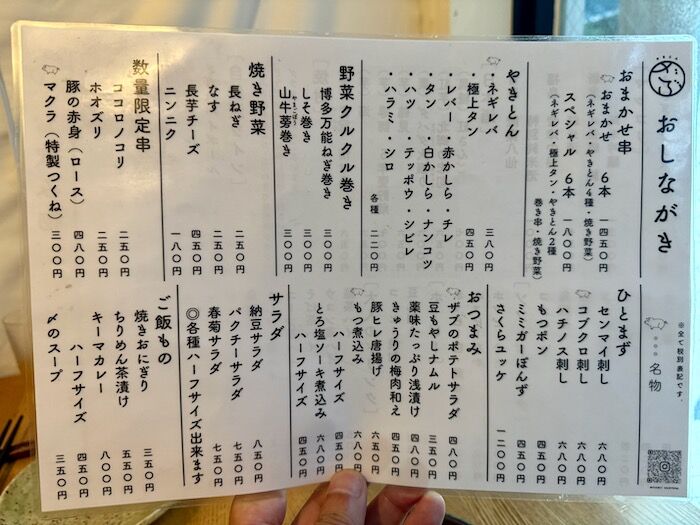 おしながき
※全て税別表記です。
…名物
おまかせ串
おまかせ 6本 一四五〇円
（ネギレバ・やきとん4種・焼き野菜）
スペシャル 6本 一八〇〇円
（ネギレバ・極上タン・やきとん2種
巻き串・焼き野菜）
やきとん
・ネギレバ 三八〇円
・極上タン 四五〇円
・レバー ・赤かしら ・チレ
・タン ・白かしら ・ナンコツ
・ハツ ・テッポウ ・シビレ
・ハラミ ・シロ
各種 二二〇円
野菜クルクル巻き
博多万能ねぎ巻き 三三〇円
しそ巻き 三〇〇円
山牛蒡巻き 三〇〇円
焼き野菜
長ねぎ 二五〇円
なす 二五〇円
長芋チーズ 四五〇円
ニンニク 一八〇円
数量限定串
ココロノコリ 二五〇円
ホオズリ 二五〇円
豚の赤身（ロース） 四八〇円
マクラ（特製つくね） 三〇〇円
ひとまず
センマイ刺し 六八〇円
コブクロ刺し 六八〇円
ハチノス刺し 六八〇円
もつポン 四五〇円
ミミガーぽんず 四五〇円
さくらユッケ 一二〇〇円
おつまみ
ザブのポテトサラダ 四八〇円
豆もやしナムル 三五〇円
薬味たっぷり浅漬け 四八〇円
きゅうりの梅肉和え 四五〇円
豚ヒレ唐揚げ 六五〇円
もつ煮込み 六八〇円
ハーフサイズ 四五〇円
とろ塩ソーキ煮込み 六八〇円
ハーフサイズ 四五〇円
サラダ
納豆サラダ 八五〇円
パクチーサラダ 七五〇円
春菊サラダ 七五〇円
◎各種ハーフサイズ出来ます
ご飯もの
焼きおにぎり 三五〇円
ちりめん茶漬け 五五〇円
キーマカレー 八〇〇円
ハーフサイズ 四五〇円
〆のスープ 三五〇円